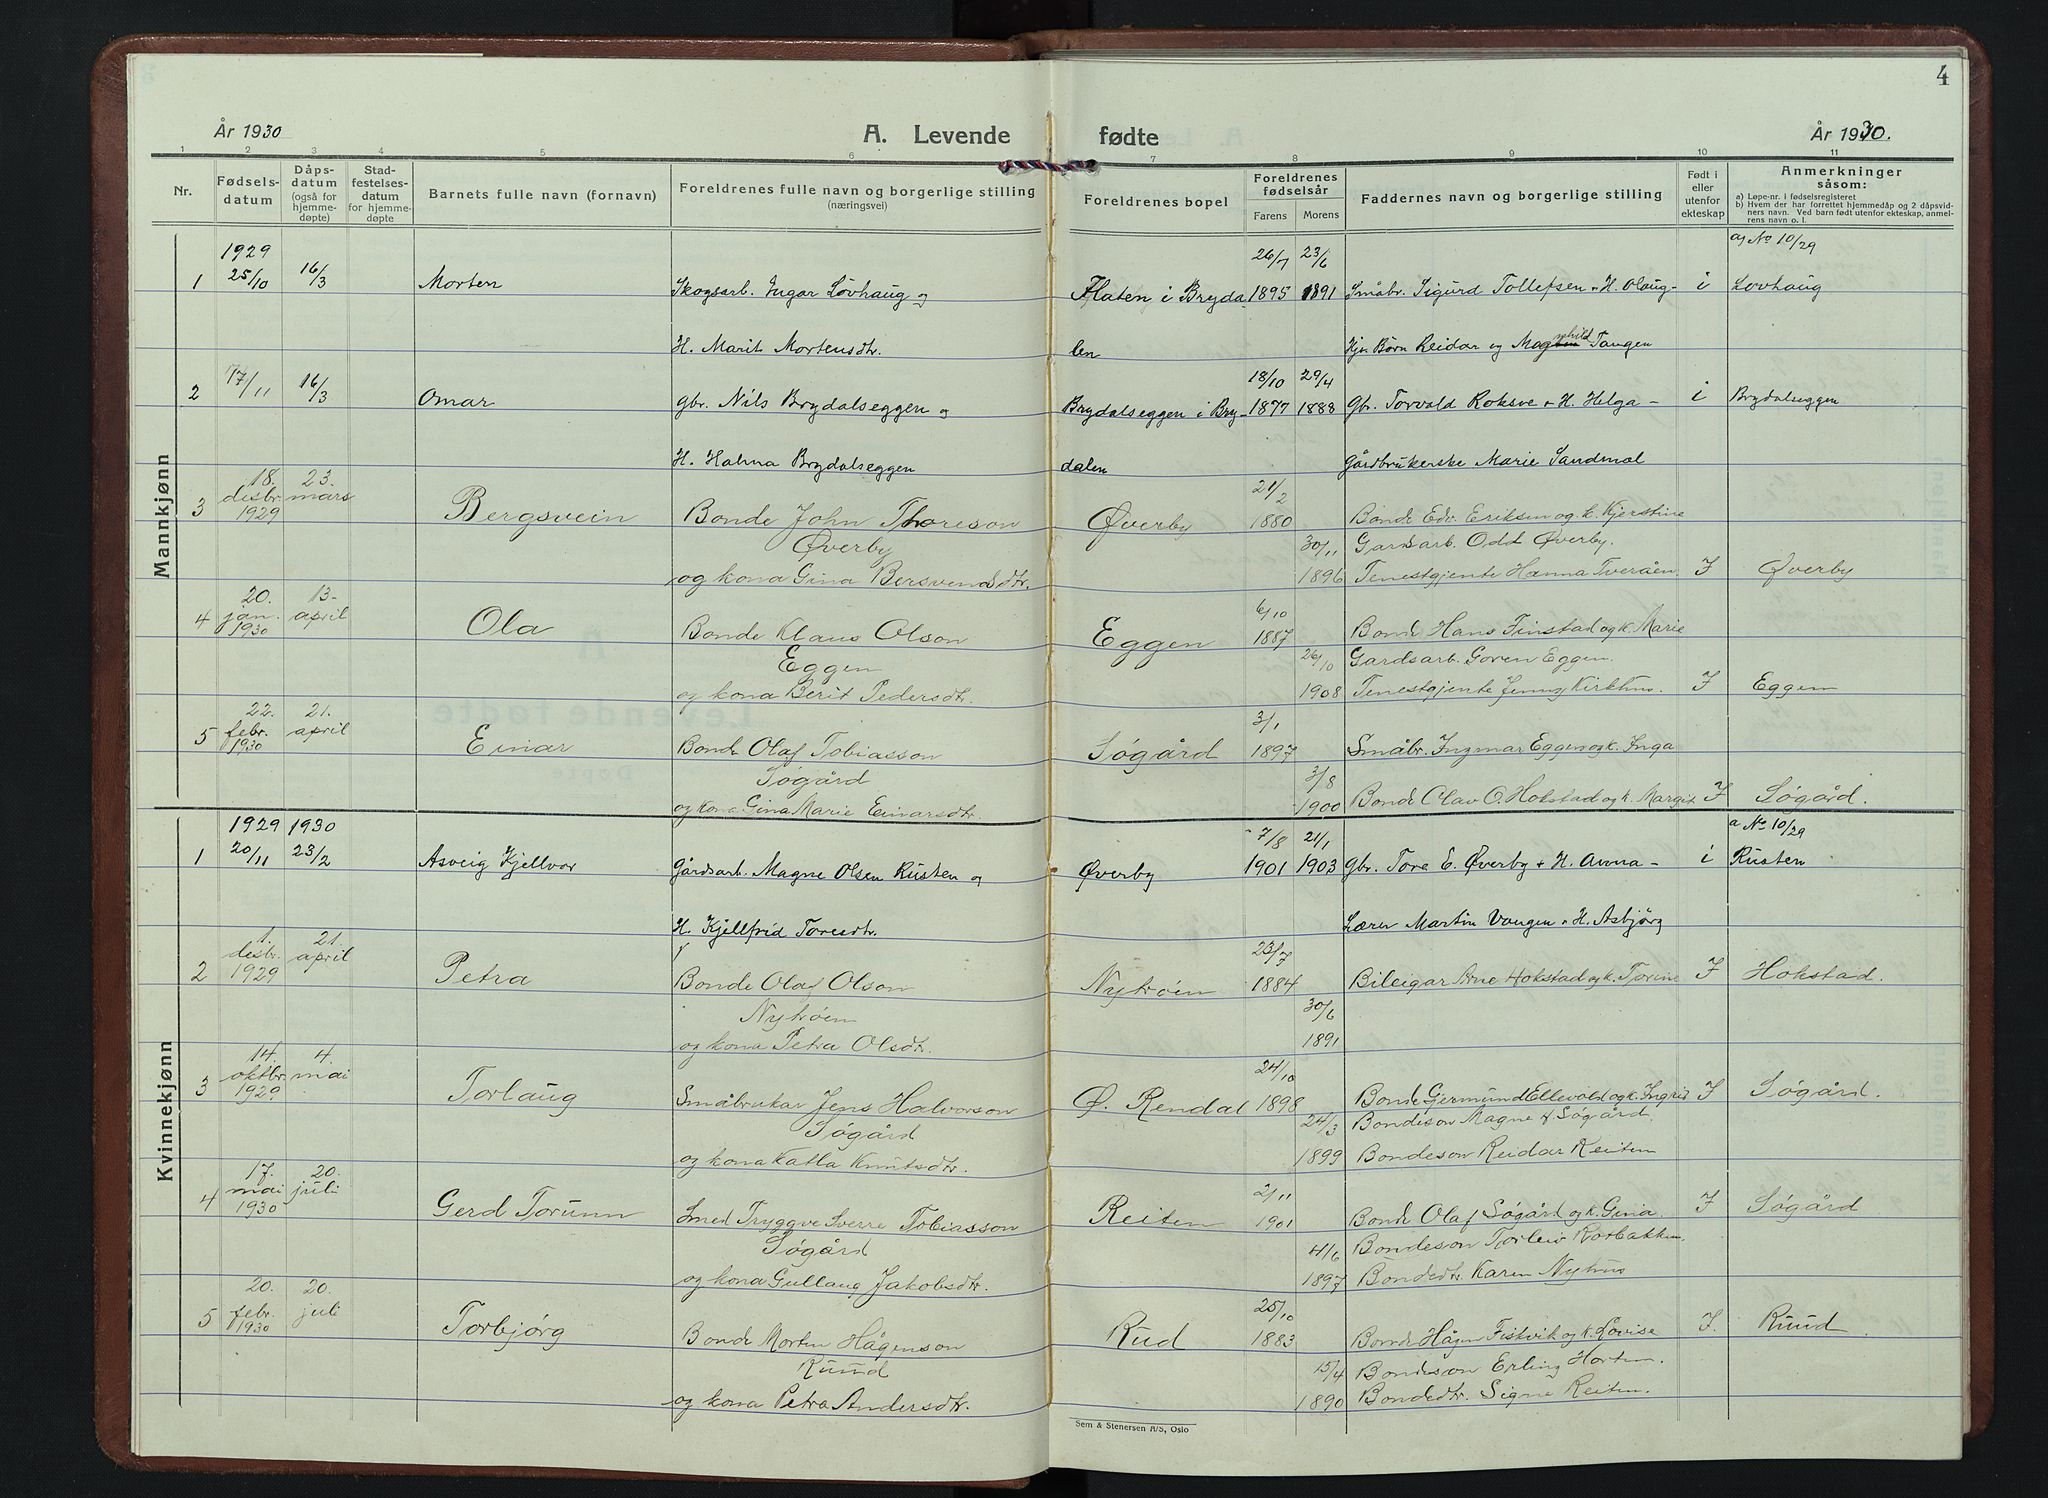 4
År 1930
A. Levende fødte
År 1930.
1 2 3 4 5 6 7 8 9 10 11
Nr.
Fødsels-
datum
Dåps-
datum
(også for
hjemme-
døpte)
Stad-
festelses-
datum
for hjemme-
døpte
Barnets fulle navn (fornavn)
Foreldrenes fulle navn og borgerlige stilling
(næringsvei)
Foreldrenes bopel
Foreldrenes
fødselsår
Farens Morens
Faddernes navn og borgerlige stilling
Født i
eller
utenfor
ekteskap
Anmerkninger
såsom:
a) Løpe-nr. i fødselsregisteret
b) Hvem der har forrettet hjemmedåp og 2 dåpsvid-
ners navn. Ved barn født utenfor ekteskap, anmel-
rens navn o. l.
Mannkjønn
1929 26/7 23/6 a) No 10/29
1 25/10 16/3 Morten Skogsarb. Ingar Løvhaug og Flaten i Bryda 1895 1891 Småbr. Sigurd Tollefsen + H. Olaug- i Lovhaug
H. Marit Mortensdtr. len Hjv. Børn Reidar og Magnhild Tangen
2 17/11 16/3 Omar gbr. Nils Brydalseggen og Brydalseggen i Bry- 18/10 1877 29/4 1888 Gbr. Torvald Roksve + H. Helga - i Brydalseggen
H. Hahna Brydalseggen dalen Gårdbrukerske Marie Sandmæl
3 18. desbr. 1929 23. mars Bergsvein Bonde John Thoreson Øverby 21/2 1880 Bonde Edv. Eriksen og k. Kjerstine
Øverby 30/11 Gardsarb. Odd Øverby.
og kona Gina Bersvendsdtr. 1896 Tenestgjente Hanna Tveråen J Øverby
4 20. jan. 1930 13. april Ola Bonde Klaus Olson Eggen 6/10 1887 Bonde Hans Finstad og k. Marie
Eggen 26/10 Gardsarb. Goven Eggen.
og kona Berit Pedersdtr. 1908 Tenestgjente Jenny Kirkhus. J Eggen
5 22. febr. 1930 21. april Einar Bonde Olaf Tobiasson Søgård 3/1 1897 Småbr. Ingmar Eggen og k. Inga
Søgård 3/8
og kona Gina Marie Einarsdtr. 1900 Bonde Olav O. Hokstad og k. Margit J Søgård.
Kvinnekjønn
1929 1930 7/8 21/1 a No 10/29
1 20/11 23/2 Asveig Kjellvor Gårdsarb. Magne Olsen Rusten og Øverby 1901 1903 Gbr. Tore E. Øverby + H. Anna - i Rusten
H. Kjellfrid Toresdtr. Lærer Martin Vangen + H. Asbjørg
2 1. desbr. 1929 21. april Petra Bonde Olaf Olson Nytrøen 23/7 1884 Bileigar Arne Hokstad og k. Torine J Hokstad.
Nytrøen 30/6
og kona Petra Olsdtr. 1891
3 14. oktbr. 1929 4. mai Torlaug Småbrukar Jens Halvorson Ø. Rendal 24/10 1898 Bonde Germund Ellevold og k. Ingrid J Søgård.
Søgård 24/3 Bondeson Magne J Søgård.
og kona Katla Knutsdtr. 1899 Bondeson Reidar Reiten
4 17. mai 1930 20. juli Gerd Torunn Smed Tryggve Sverre Tobiasson Reiten 2/11 1901 Bonde Olaf Søgård og k. Gina. J Søgård
Søgård 4/6 Bondeson Torleiv Rotbakken.
og kona Gullaug Jakobsdtr. 1897 Bondedtr. Karen Nyhus
5 20. febr. 1930 20. juli Torbjørg Bonde Morten Hågenson Rud 25/10 1883 Bonde Hågen Fiskvik og k. Lovise J. Ruud
Ruud 15/4 Bondeson Erling Horten.
og kona Petra Andersdtr. 1890 Bondedtr. Signe Reiten.
Sem & Stenersen A/S, Oslo